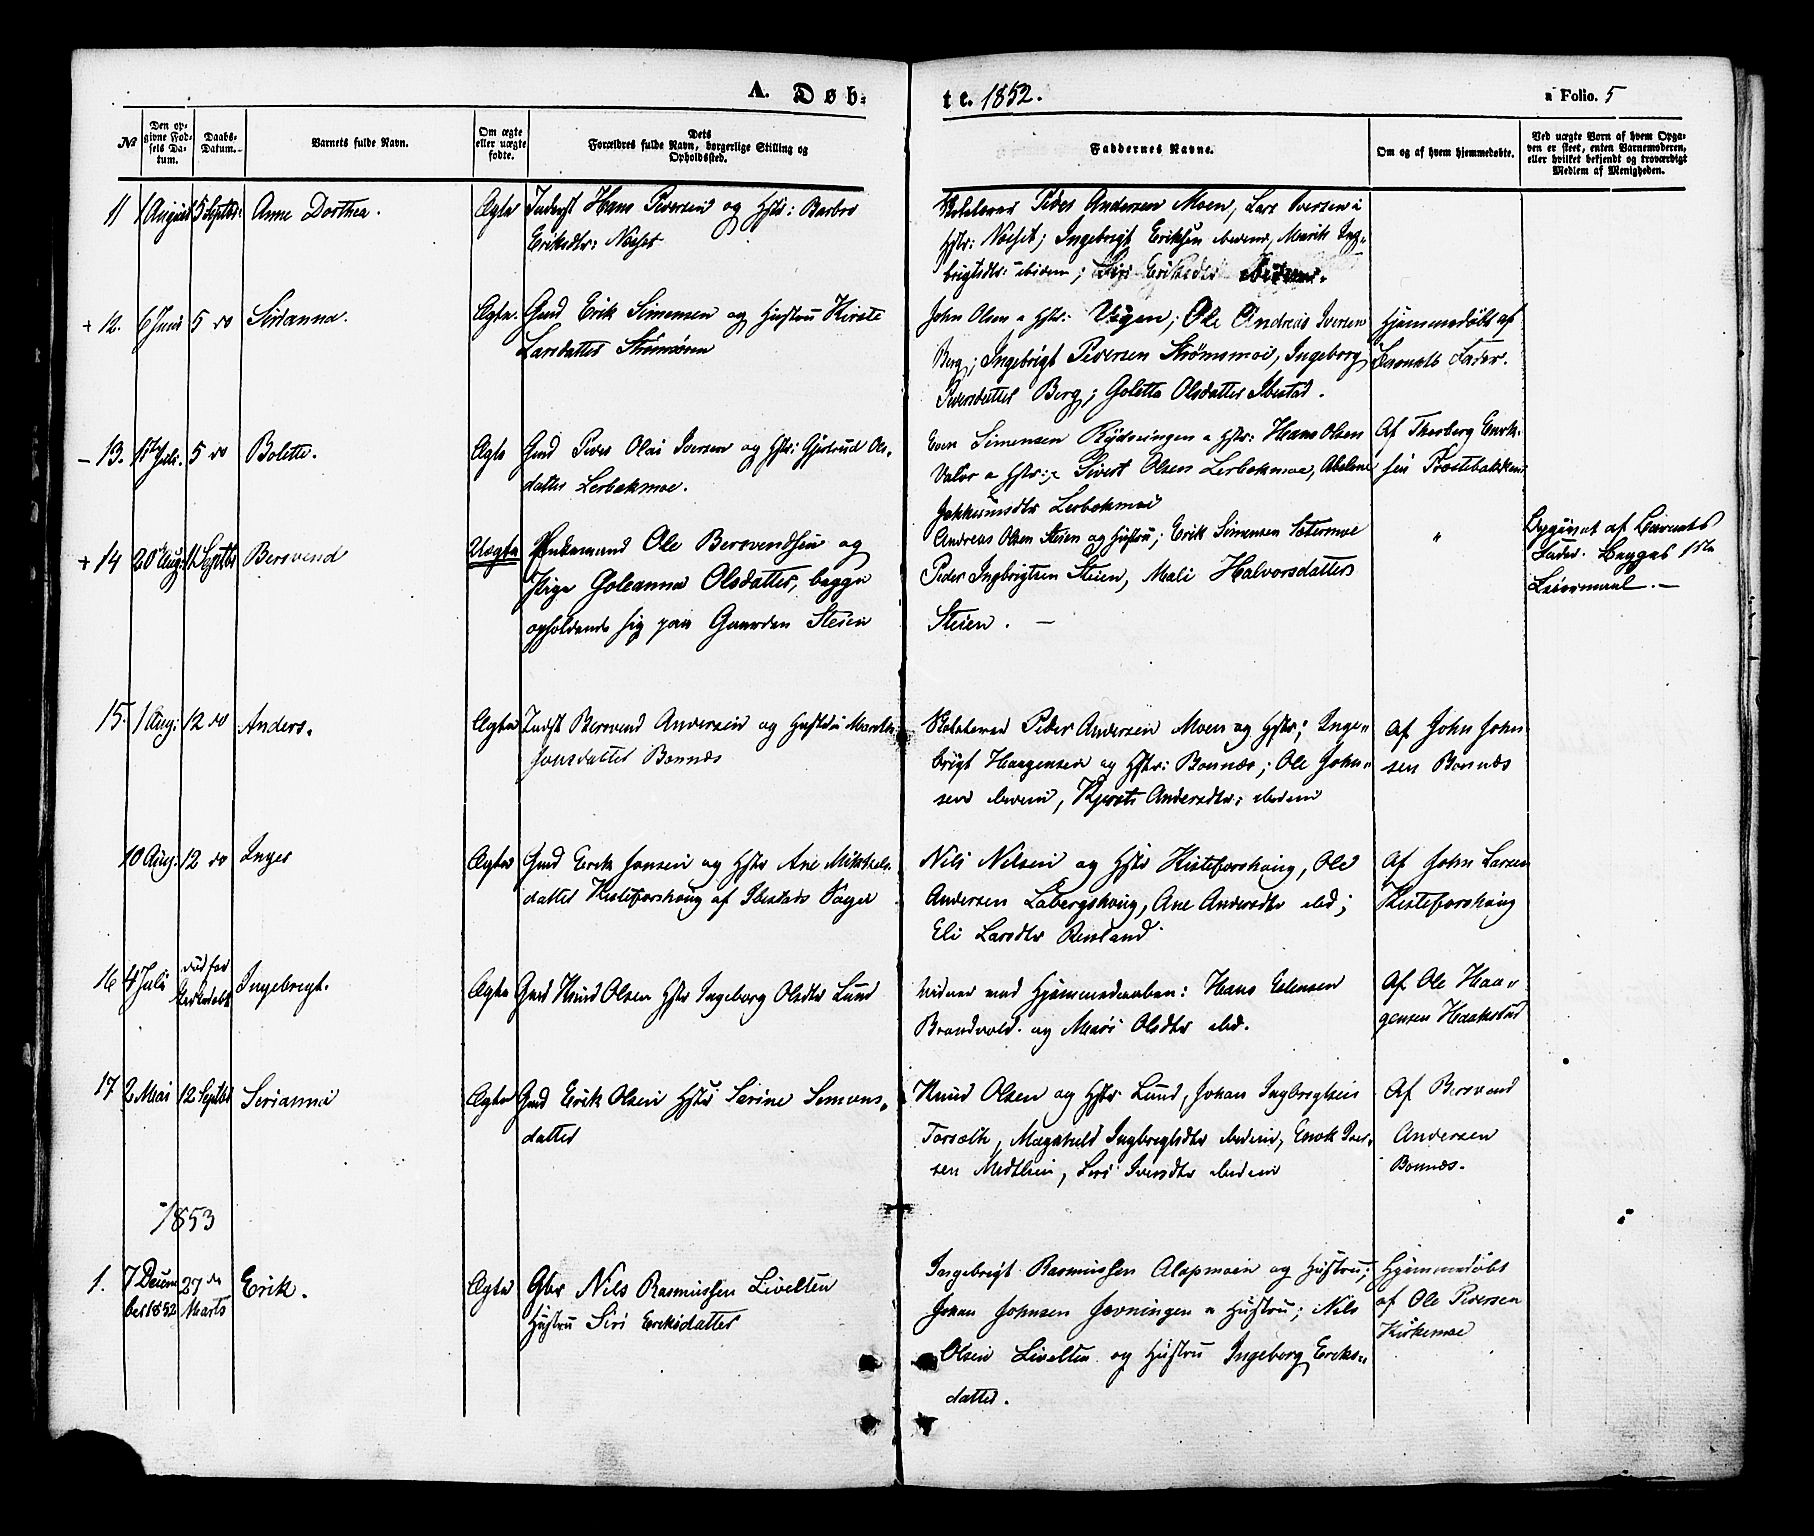 A. Døb-
te. 1852.
a Folio. 5
№
Den op-
givne Fød-
sels Da-
tum.
Daabs-
Datum.
Barnets fulde Navn.
Om ægte
eller uægte
fødte.
Dets
Forældres fulde Navn, borgerlige Stilling og
Opholdssted.
Faddernes Navne.
Om og af hvem hjemmedøbte.
Ved uægte Børn af hvem Opga-
ven er skeet, enten Barnemoderen,
eller hvilket bekjendt og troværdigt
Medlem af Menigheden.
11 1 August 5 Septbr: Anne Dorthea.
Ægte
Inderst Hans Pedersen og Hstr: Barbro
Eriksdtr: Noeset
Peder Andersen Moen, Lars Iversen
Hstr: Noeset; Ingebrigt Eriksen ibidem, Marit Ing-
brigtsdtr: ibidem; Siri Eriksdtr ibidem.
+ 12. 6 Juni 5 do Serianna.
Ægte.
Gmd Erik Simensen og Hustru Kirste
Larsdatter Strømsøren
John Olsen & Hstr: Vigen; Ole Andreas Iversen
Berg; Ingebrigt Pedersen Strømsmoe, Ingeborg
Pedersdatter Berg; Goletta Olsdatter Ibestad.
Hjemmedøbt af
Barnets Fader.
- 13. Juli. 5 do Bolette.
Ægte
Gmd Peder Olai Iversen og Hstr: Gjertrud Ols-
datter Lerbekmoe.
Even Simensen & Hstr: Hans Olsen
& Hstr: Sivert Olsen Lerbekmoe, Abelone
Lerbekmoe
Af Thorberg Enok-
sen
+ 14 20 Aug: 11 Septbr Bersvend
Uægte
Ole Bersvendsen og
Pige Goleanna Olsdatter, begge
opholdende sig paa Gaarden Steien
Andreas Olsen Steien og Hustru; Erik Simensen Sætermoe
Peder Ingbrigtsen Steien, Mali Halvorsdatter
Steien. —
"
Opgivet af Barnets
Fader. Begges 1ste
Leiermaal. —
15. 1 Aug: 12 do Anders.
Ægte
Indst Bersvend Andersen og Hustru Marith
Jonsdatter Bonnæs
Peder Andersen Moen og Hstr; Inge-
brigt Haagensen og Hstr: Bonnæs; Ole John-
sen ibidem, Kjersti Andersdtr: ibidem
Af John John-
sen Bonnæs
10 Aug. 12 do Inger
Ægte
Gmd Erik Jonsen og Hstr Ane Mikkels-
datter Kisteforshaug af Ibestads Sogn
Nils Nilsen og Hstr Kisteforshaug, Ole
Andersen Labergshaug, Ane Andersdtr ibid;
Eli Larsdtr Renland
Af John Larsen
Kisteforshaug
16 4 Juli død før Ingebregt.
Ægte
Gmd Knud Olsen Hstr Ingeborg Olsdtr Lund
Vidner ved Hjemmedaaben: Hans Edensen
Brandvold og Mari Olsdtr ibid.
Af Ole Haa-
gensen Haakstad
17 2 Mai 12 Septbr Serianna
Ægte
Gmd Erik Olsen Hstr Serine Simons-
datter
Knud Olsen og Hstr Lund, Johan Ingbregtsen
Forseth, Magnhild Ingbregtsdtr ibidem, Enok Iver-
sen Medlien, Siri Iversdtr ibidem
Af Bersvend
Andersen
Bonnæs.
1853
1. 7 Decem 27de Erik.
ber 1852 Marts
Ægte
Gbr Nils Rasmussen Livelten
Hustru Siri Eriksdatter
Ingebrigt Rasmussen Alapmoen og Hustru;
Johan Johnsen Jævningen & Hustru; Nils
Olsen Livelten og Hustru Ingeborg Eriks-
datter.
Hjemmedøbt
af Ole Pedersen
Kirkemoe